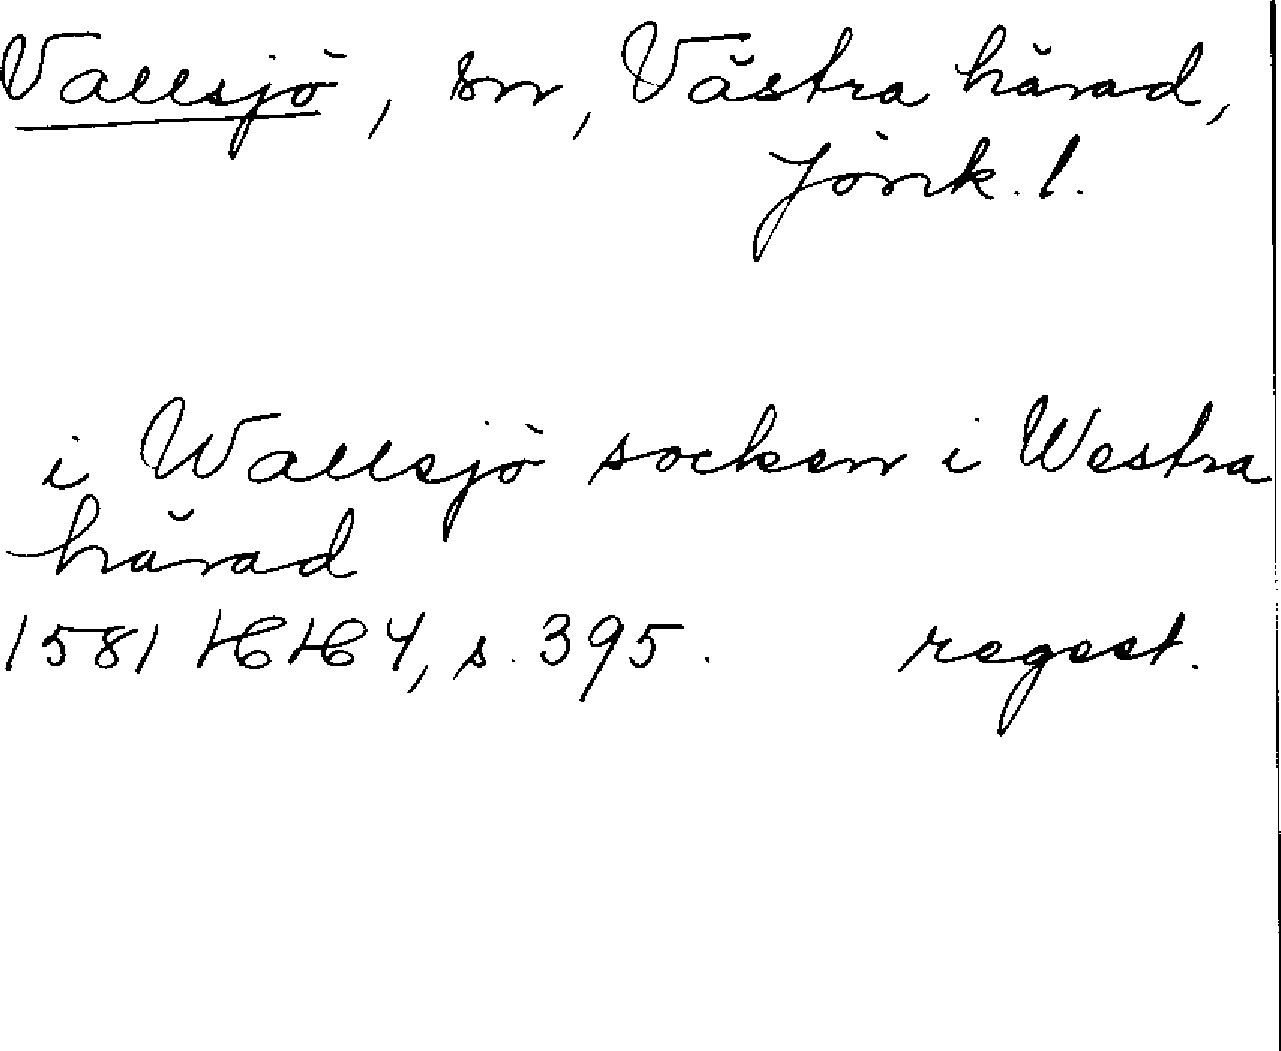 Vallsjö, sn, Västra härad,
Jönk. l.
i Wallsjö socken i Westra
härad
1581 HH 4, s. 395. regest.